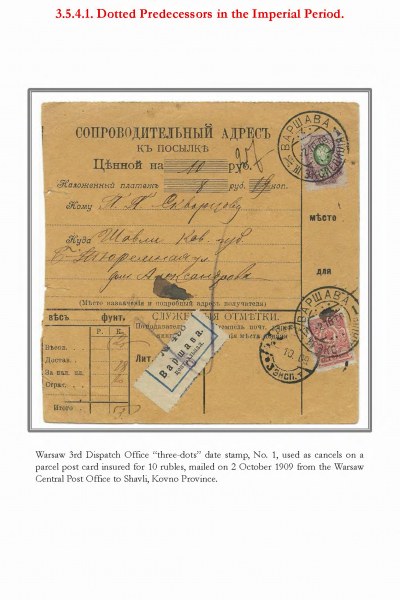 3.5.4.1. Dotted Predecessors in the Imperial Period.
СОПРОВОДИТЕЛЬНЫЙ АДРЕСЪ
КЪ ПОСЫЛКѢ
Цѣнной на 10 руб.
Наложенный платежъ 8 руб. коп.
Кому П. П. Скворцову
Куда Шавли Ков. губ.
Тюремная ул.
дом Александрова
(Мѣсто назначенія и подробный адресъ получателя)
МѢСТО
ДЛЯ
ВАРШАВА
ВАРШАВА
3 ЭКСП.
ВѢСЪ ФУНТ.
Р. К.
Вѣсов.
Достав.
За нал. пл.
Страх.
Итого
СЛУЖЕБНЫЯ ОТМѢТКИ.
Лит.
Варшава.
Warsaw 3rd Dispatch Office “three-dots” date stamp, No. 1, used as cancels on a
parcel post card insured for 10 rubles, mailed on 2 October 1909 from the Warsaw
Central Post Office to Shavli, Kovno Province.